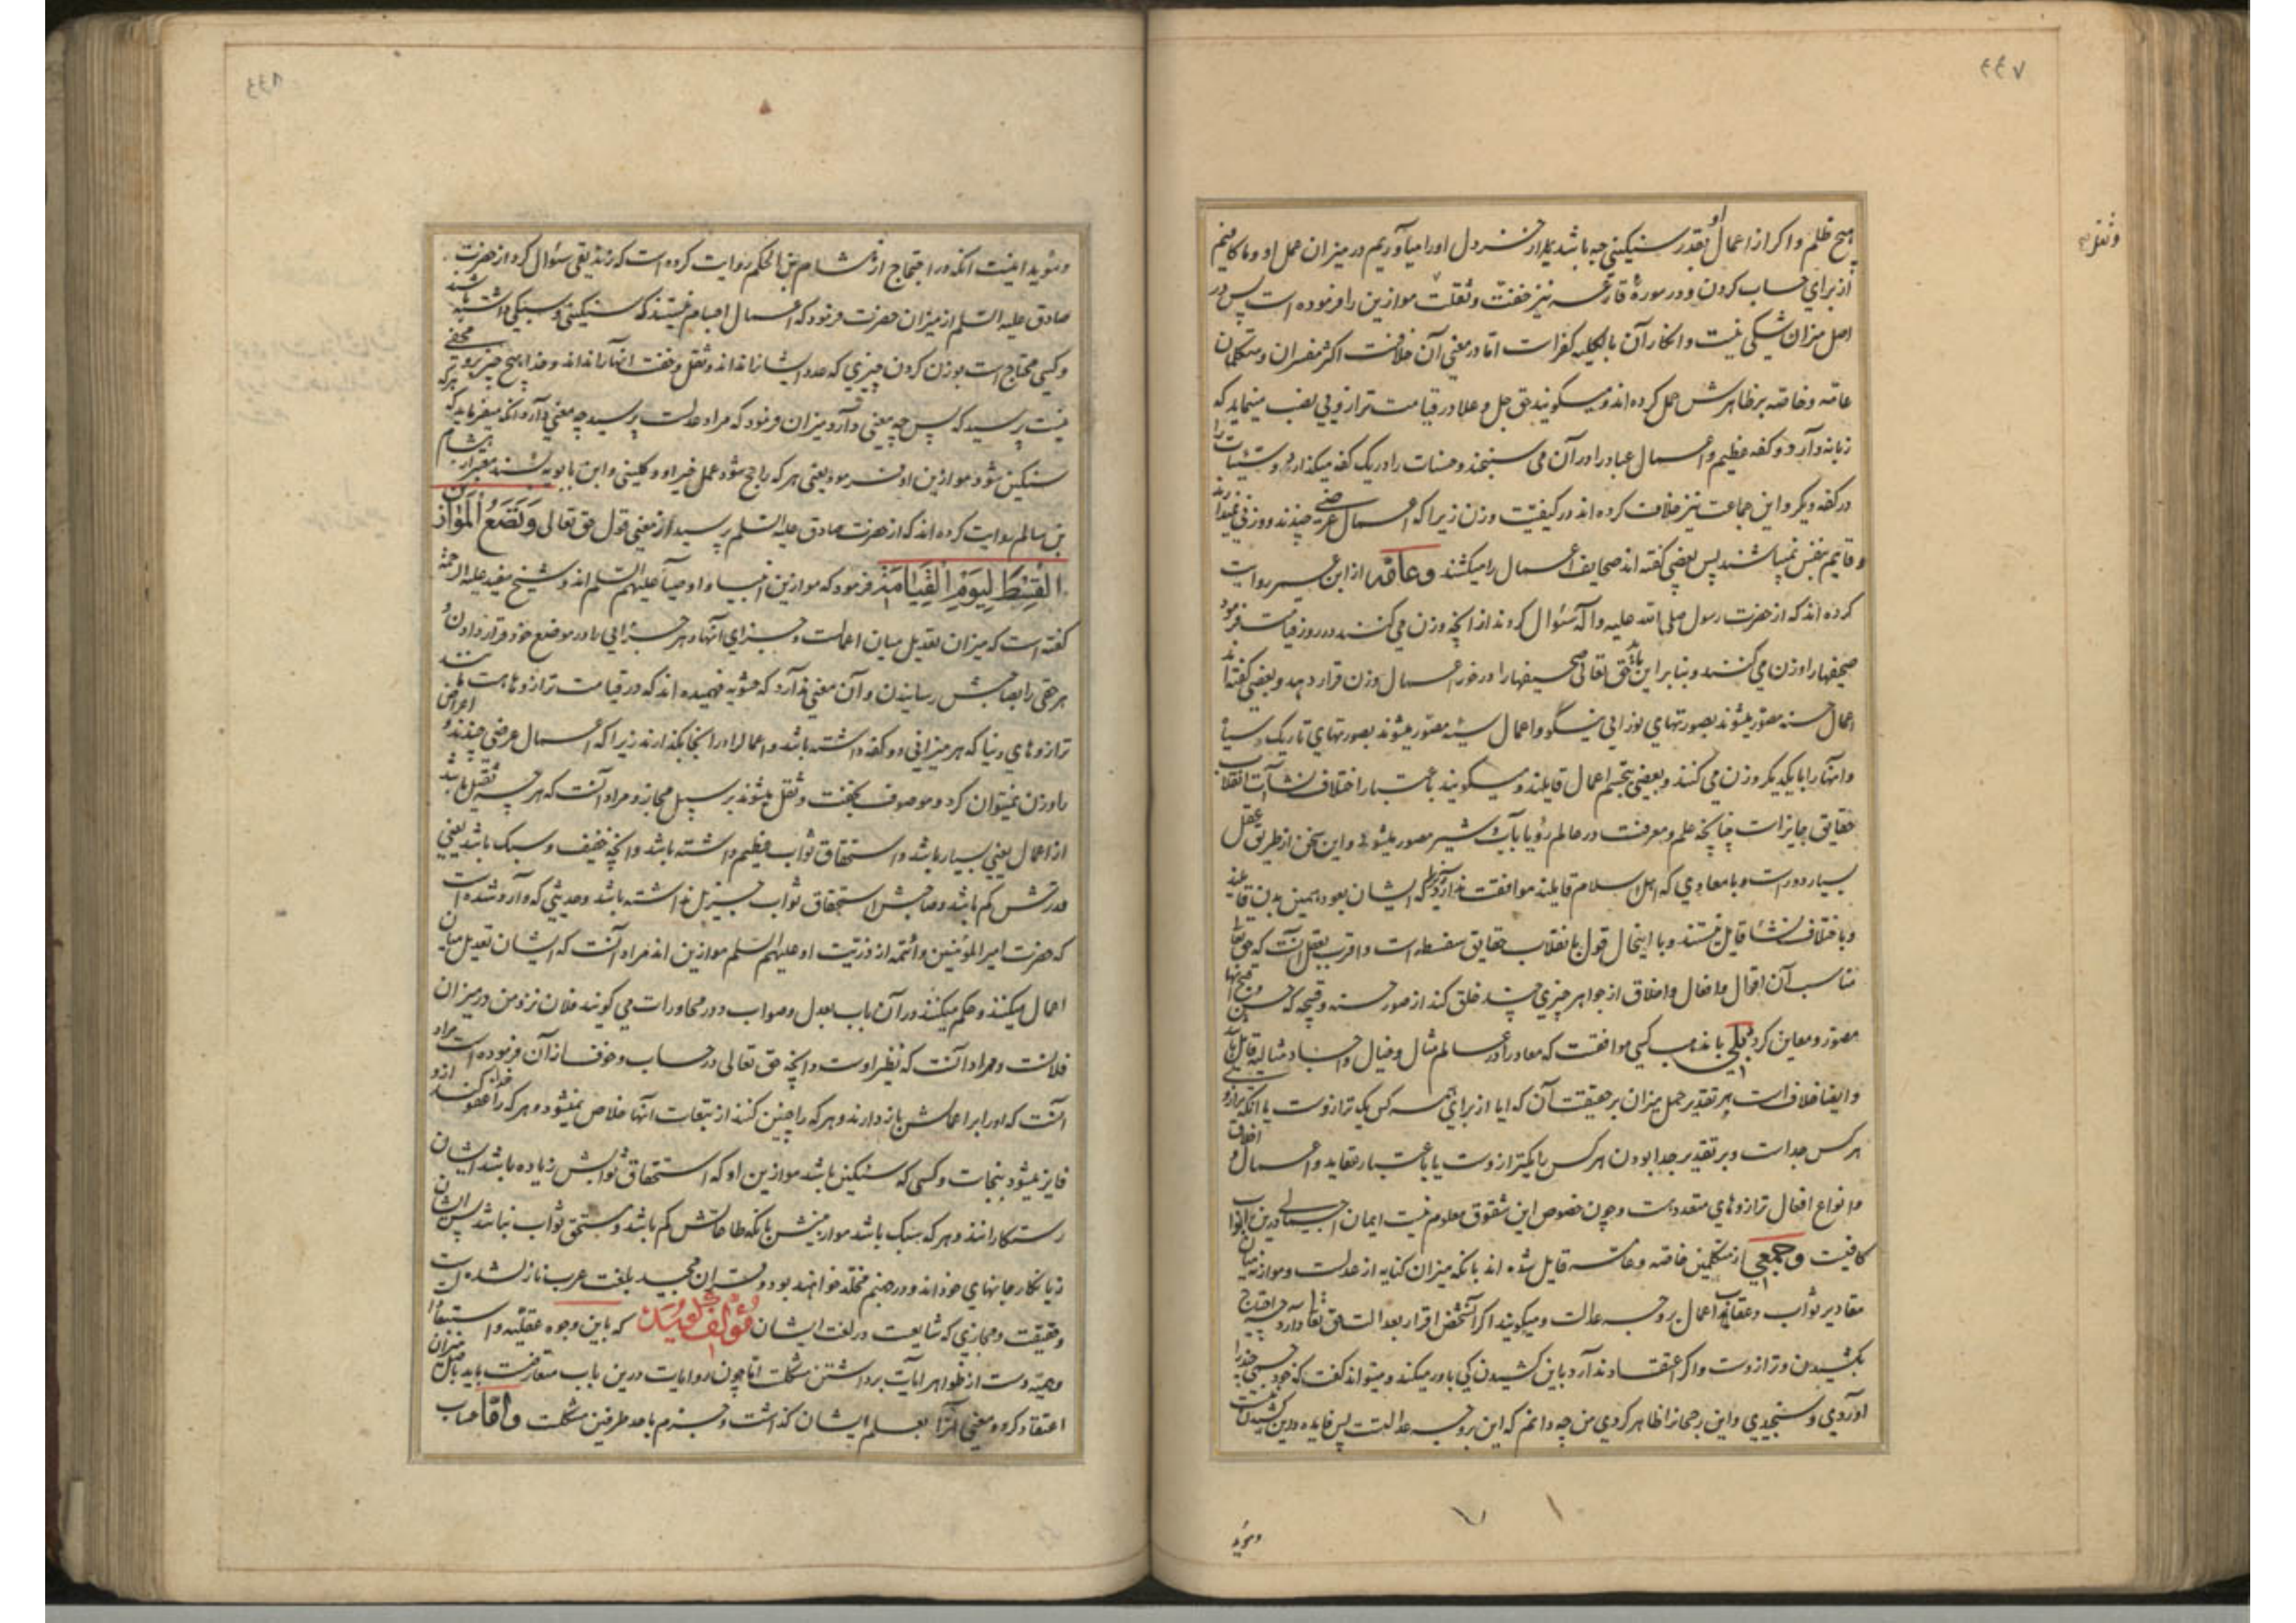 ۴۴۷
هیچ ظلم و اگر از اعمال او بقدر سنکینی حبه باشد از خردل اورا میآوریم در میزان عمل او و ما کافیم
از برای حساب کردن و در سورهٔ قارعه نیز خفت و ثقلت موازین را فرموده است پس در
اصل میزان شکی نیست و انکار آن بالکلیه کفر است اما در معنی آن خلافست اکثر مفسران و متکلمان
عامه و خاصه بر ظاهرش حمل کرده اند و میگویند حق جل و علا در قیامت ترازویی نصب مینماید که
زبانه دارد و دو کفه عظیم و اعمال عباد را در آن می سنجند و حسنات را در یک کفه میگذارند و سیئات را
در کفه دیگر و این جماعت نیز خلاف کرده اند در کیفیت وزن زیرا که اعمال عرضی چندند و وزنی نمیدارند
و قایم بنفس نمیباشند پس بعضی گفته اند صحایف اعمال را میکشند وعامه از ابن عمر روایت
کرده اند که از حضرت رسول صلی الله علیه و آله سئوال کردند از آنچه وزن می کنند در روز قیامت فرمود
صحیفها را وزن می کنند و بنا بر این باید حق تعالی صحیفها را در خور اعمال وزن قرار دهد و بعضی گفته اند
اعمال حسنه مصور میشوند بصورتهای نورانی نیکو و اعمال سیئه مصور میشوند بصورتهای تاریک
و آنها را با یکدیگر وزن می کنند و بعضی بتجسم اعمال قایلند و میگویند باعتبار اختلاف نشآت انقلاب
حقایق جایز است چنانچه علم و معرفت در عالم رؤیا بآب و شیر مصور میشود و این سخن از طریق عقل
بسیار دور است و با معادی که اهل اسلام قایلند موافقت ندارد زیرا که ایشان بعود همین بدن قایلند
و باختلاف نشأ قایل نیستند و با اینحال قول بانقلاب حقایق سفسطه است و اقرب بعقل آنست که حق تعالی
مناسب آن اقوال و افعال و اخلاق از جواهر چیزی چند خلق کند از صور حسنه و قبیحه که حسن و قبح آنها
مصور و معاین گردد بلی با مذهب کسی موافقت که معاد را در عالم مثال و خیال و اجساد مثالیه قایل باشد
و ایضا خلاف است بر تقدیر حمل میزان بر حقیقت آن که ایا از برای همه کس یک ترازوست یا آنکه ترازوی
هر کس جداست و بر تقدیر جدا بودن هر کس را یکترازوست یا باعتبار عقاید و اعمال و اخلاق
و انواع افعال ترازوهای متعدد هست و چون خصوص این شقوق معلوم نیست ایمان اجمالی درین ابواب
کافیست وجمعی از متکلمین خاصه و عامه قایل شده اند بانکه میزان کنایه از عدلست و موازنه میان
مقادیر ثواب و عقاب و اعمال بر وجه عدالت و میگویند اگر آنشخص اقرار بعدالت حق تعالی دارد چه احتیاج
بکشیدن و ترازوست و اگر اعتقاد ندارد باین کشیدن کی باور میکند و میتواند گفت که خود جسمی چند را
آوردی و سنجیدی و این رجحان را ظاهر کردی من چه دانم که این بر وجه عدالتست پس فایده درین کشیدن نیست
ومؤید
و مؤید اینست آنکه در احتجاج از هشام بن الحکم روایت کرده است که زندیقی سئوال کرد از حضرت
صادق علیه السلم از میزان حضرت فرمود که اعمال اجسام نیستند که سنکینی و سبکی داشته باشند
و کسی محتاج است بوزن کردن چیزی که عدد ایشان را نداند و ثقل و خفت آنها را نداند و خدا هیچ چیز برو مخفی
نیست پرسید که پس چه معنی دارد میزان فرمود که مراد عدلست پرسید چه معنی دارد آنکه میفرماید که هرکه
سنکین شود موازین او فرمود یعنی هر که راجح شود عمل خیر او و کلینی و ابن بابویه بسند معتبر از هشام
بن سالم روایت کرده اند که از حضرت صادق علیه السلم پرسید از معنی قول حق تعالی وَنَضَعُ الْمَوَازِینَ
الْقِسْطَ لِیَوْمِ الْقِیَامَةِ فرمود که موازین انبیاء و اوصیآ علیهم السلم اند و شیخ مفید علیه الرحمه
گفته است که میزان تعدیل میان اعمالست و جزای آنها و هر جزایی را در موضع خود قرار دادن و
هر حقی را بصاحبش رسانیدن و آن معنی ندارد که حشویه فهمیده اند که در قیامت ترازوها هست مانند
ترازوهای دنیا که هر میزانی دو کفه داشته باشد و اعمال را در آنجا بگذارند زیرا که اعمال عرضی چندند و اعراض
را وزن نمیتوان کرد و موصوف بخفت و ثقل میشوند بر سبیل مجاز و مراد آنست که هر چه ثقیل باشد
از اعمال یعنی بسیار باشد و استحقاق ثواب عظیم داشته باشد و آنچه خفیف و سبک باشد یعنی
قدرتش کم باشد و صاحبش استحقاق ثواب جزیل نداشته باشد و حدیثی که وارد شده است
که حضرت امیر المؤمنین و ائمه از ذریت او علیهم السلم موازین اند مراد آنست که ایشان تعدیل میان
اعمال میکنند و حکم میکنند در آن باب بعدل و صواب و در محاورات می گویند فلان نزد من در میزان
فلانست و مراد آنست که نظیر اوست و آنچه حق تعالی در حساب و خوف از آن فرموده است مراد
آنست که او را بر اعمالش باز دارند و هر که را چنین کنند از تبعات آنها خلاص نمیشود و هر که را خدا عفو کند ازو
فایز میشود بنجات و کسی که سنکین باشد موازین او که استحقاق ثوابش زیاده باشد ایشان
رستکارانند و هر که سبک باشد موازینش بانکه طاعاتش کم باشد و مستحق ثواب نباشد پس ایشان
زیانکار جانهای خوداند و در جهنم مخلد خواهند بود و قرآن مجید بلغت عرب نازلشده است
و حقیقت و مجازی که شایعست در لغت ایشان مؤلف گوید که باین وجوه عقلیه و استبعادات
وهمیه دست از ظواهر آیات برداشتن مشکلست اما چون روایات درین باب متعارضست باید باصل میزان
اعتقاد کرد و معنی آنرا بعلم ایشان گذاشت و جزم باحد طرفین مشکلست واما حساب